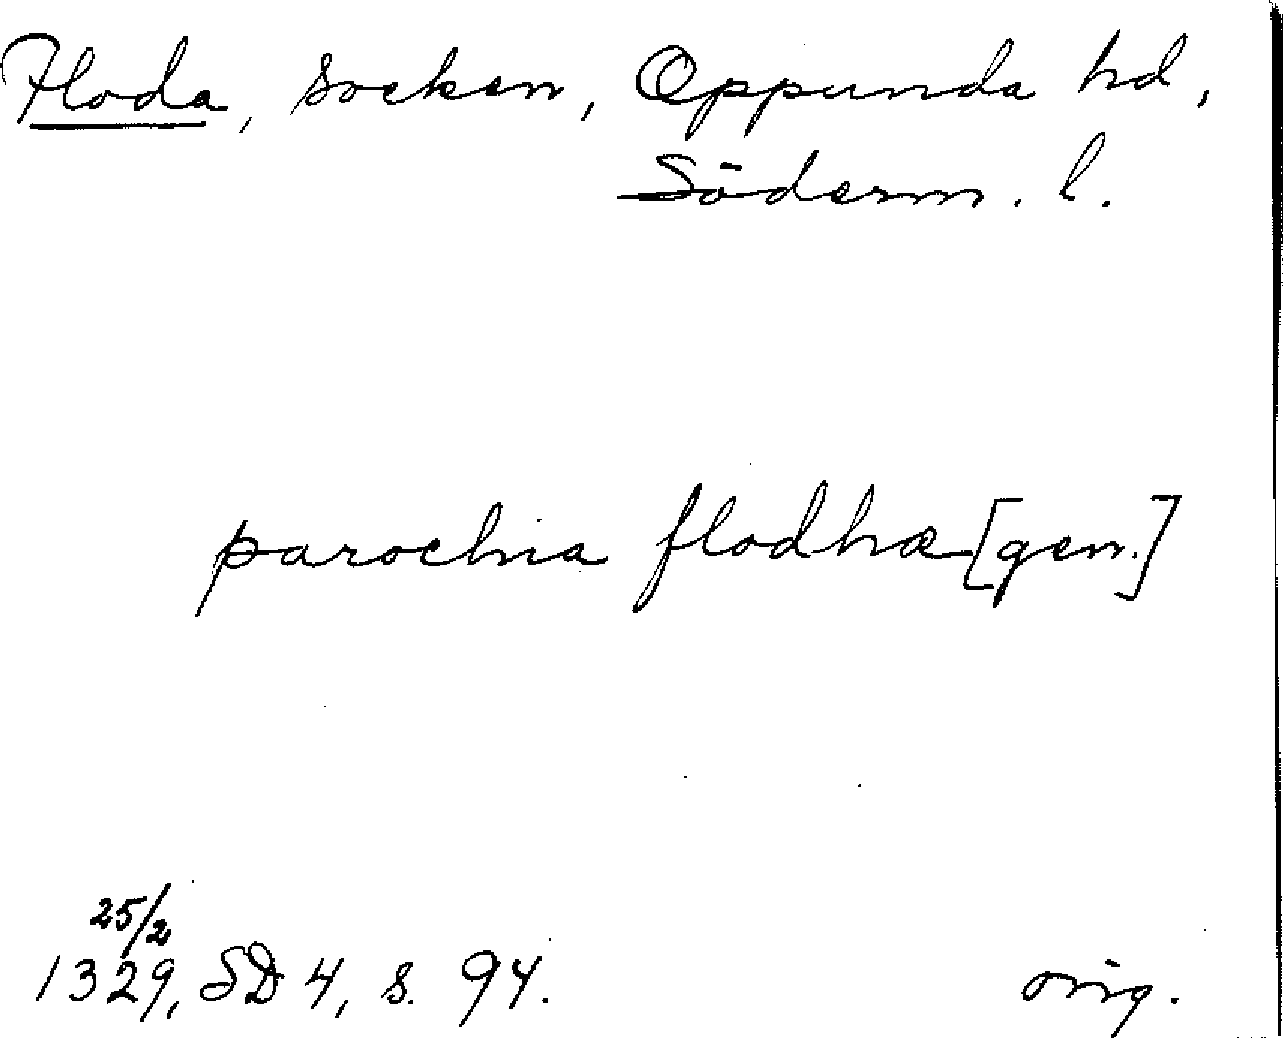 Floda, socken, Oppunda hd,
Söderm. l.
parochia flodhæ [gen.]
25/2
1329, SD 4, s. 94.
orig.